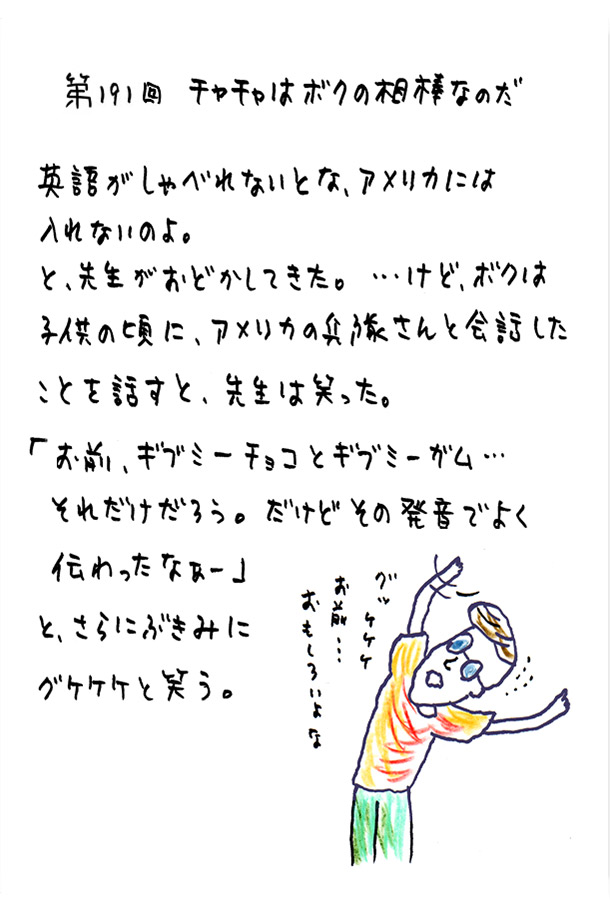 第191回 チャチャはボクの相棒なのだ
英語がしゃべれないとな、アメリカには
入れないのよ。
と、先生がおどかしてきた。…けど、ボクは
子供の頃に、アメリカの兵隊さんと会話した
ことを話すと、先生は笑った。
「お前、ギブミーチョコとギブミーガム…
それだけだろう。だけどその発音でよく
伝わったなぁー」
と、さらにぶきみに
グケケケと笑う。
グッケケケ
お前…
おもしろいよな